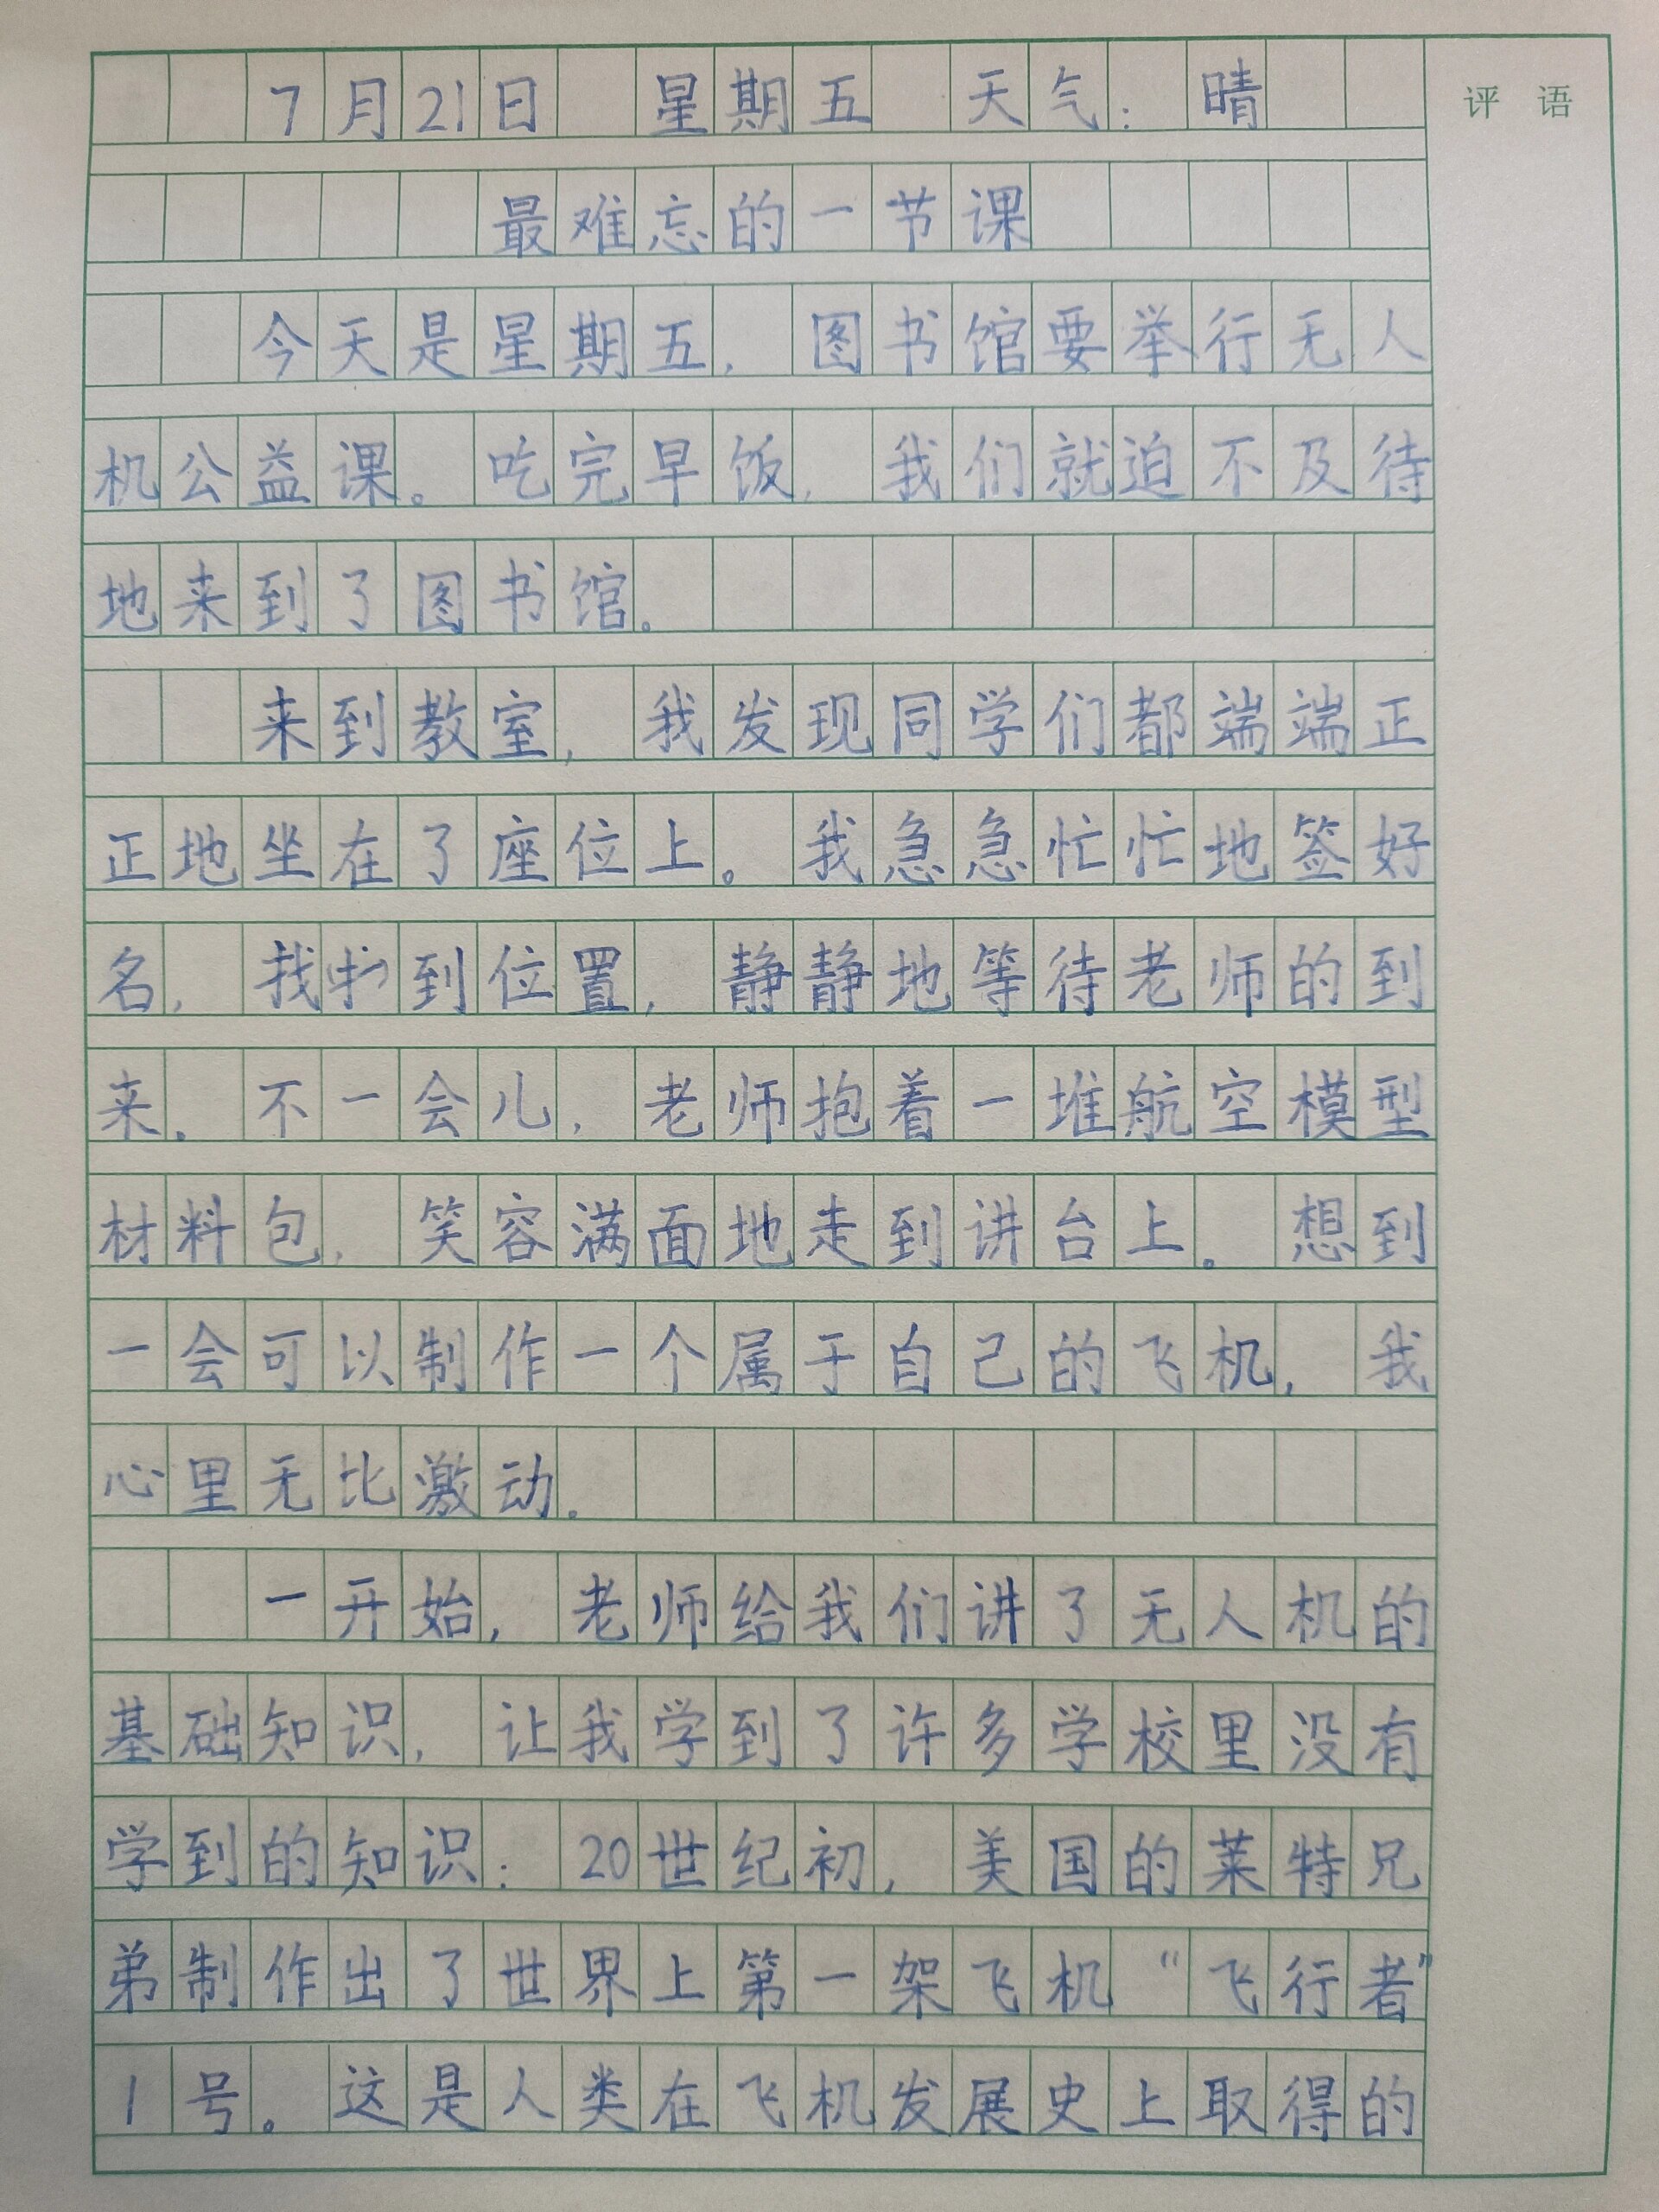 7月21日 星期五 天气：晴
评语
最难忘的一节课
今天是星期五，图书馆要举行无人
机公益课。吃完早饭，我们就迫不及待
地来到了图书馆。
来到教室，我发现同学们都端端正
正地坐在了座位上。我急急忙忙地签好
名，找到位置，静静地等待老师的到
来。不一会儿，老师抱着一堆航空模型
材料包，笑容满面地走到讲台上。想到
一会可以制作一个属于自己的飞机，我
心里无比激动。
一开始，老师给我们讲了无人机的
基础知识，让我学到了许多学校里没有
学到的知识：20世纪初，美国的莱特兄
弟制作出了世界上第一架飞机“飞行者”
1号。这是人类在飞机发展史上取得的